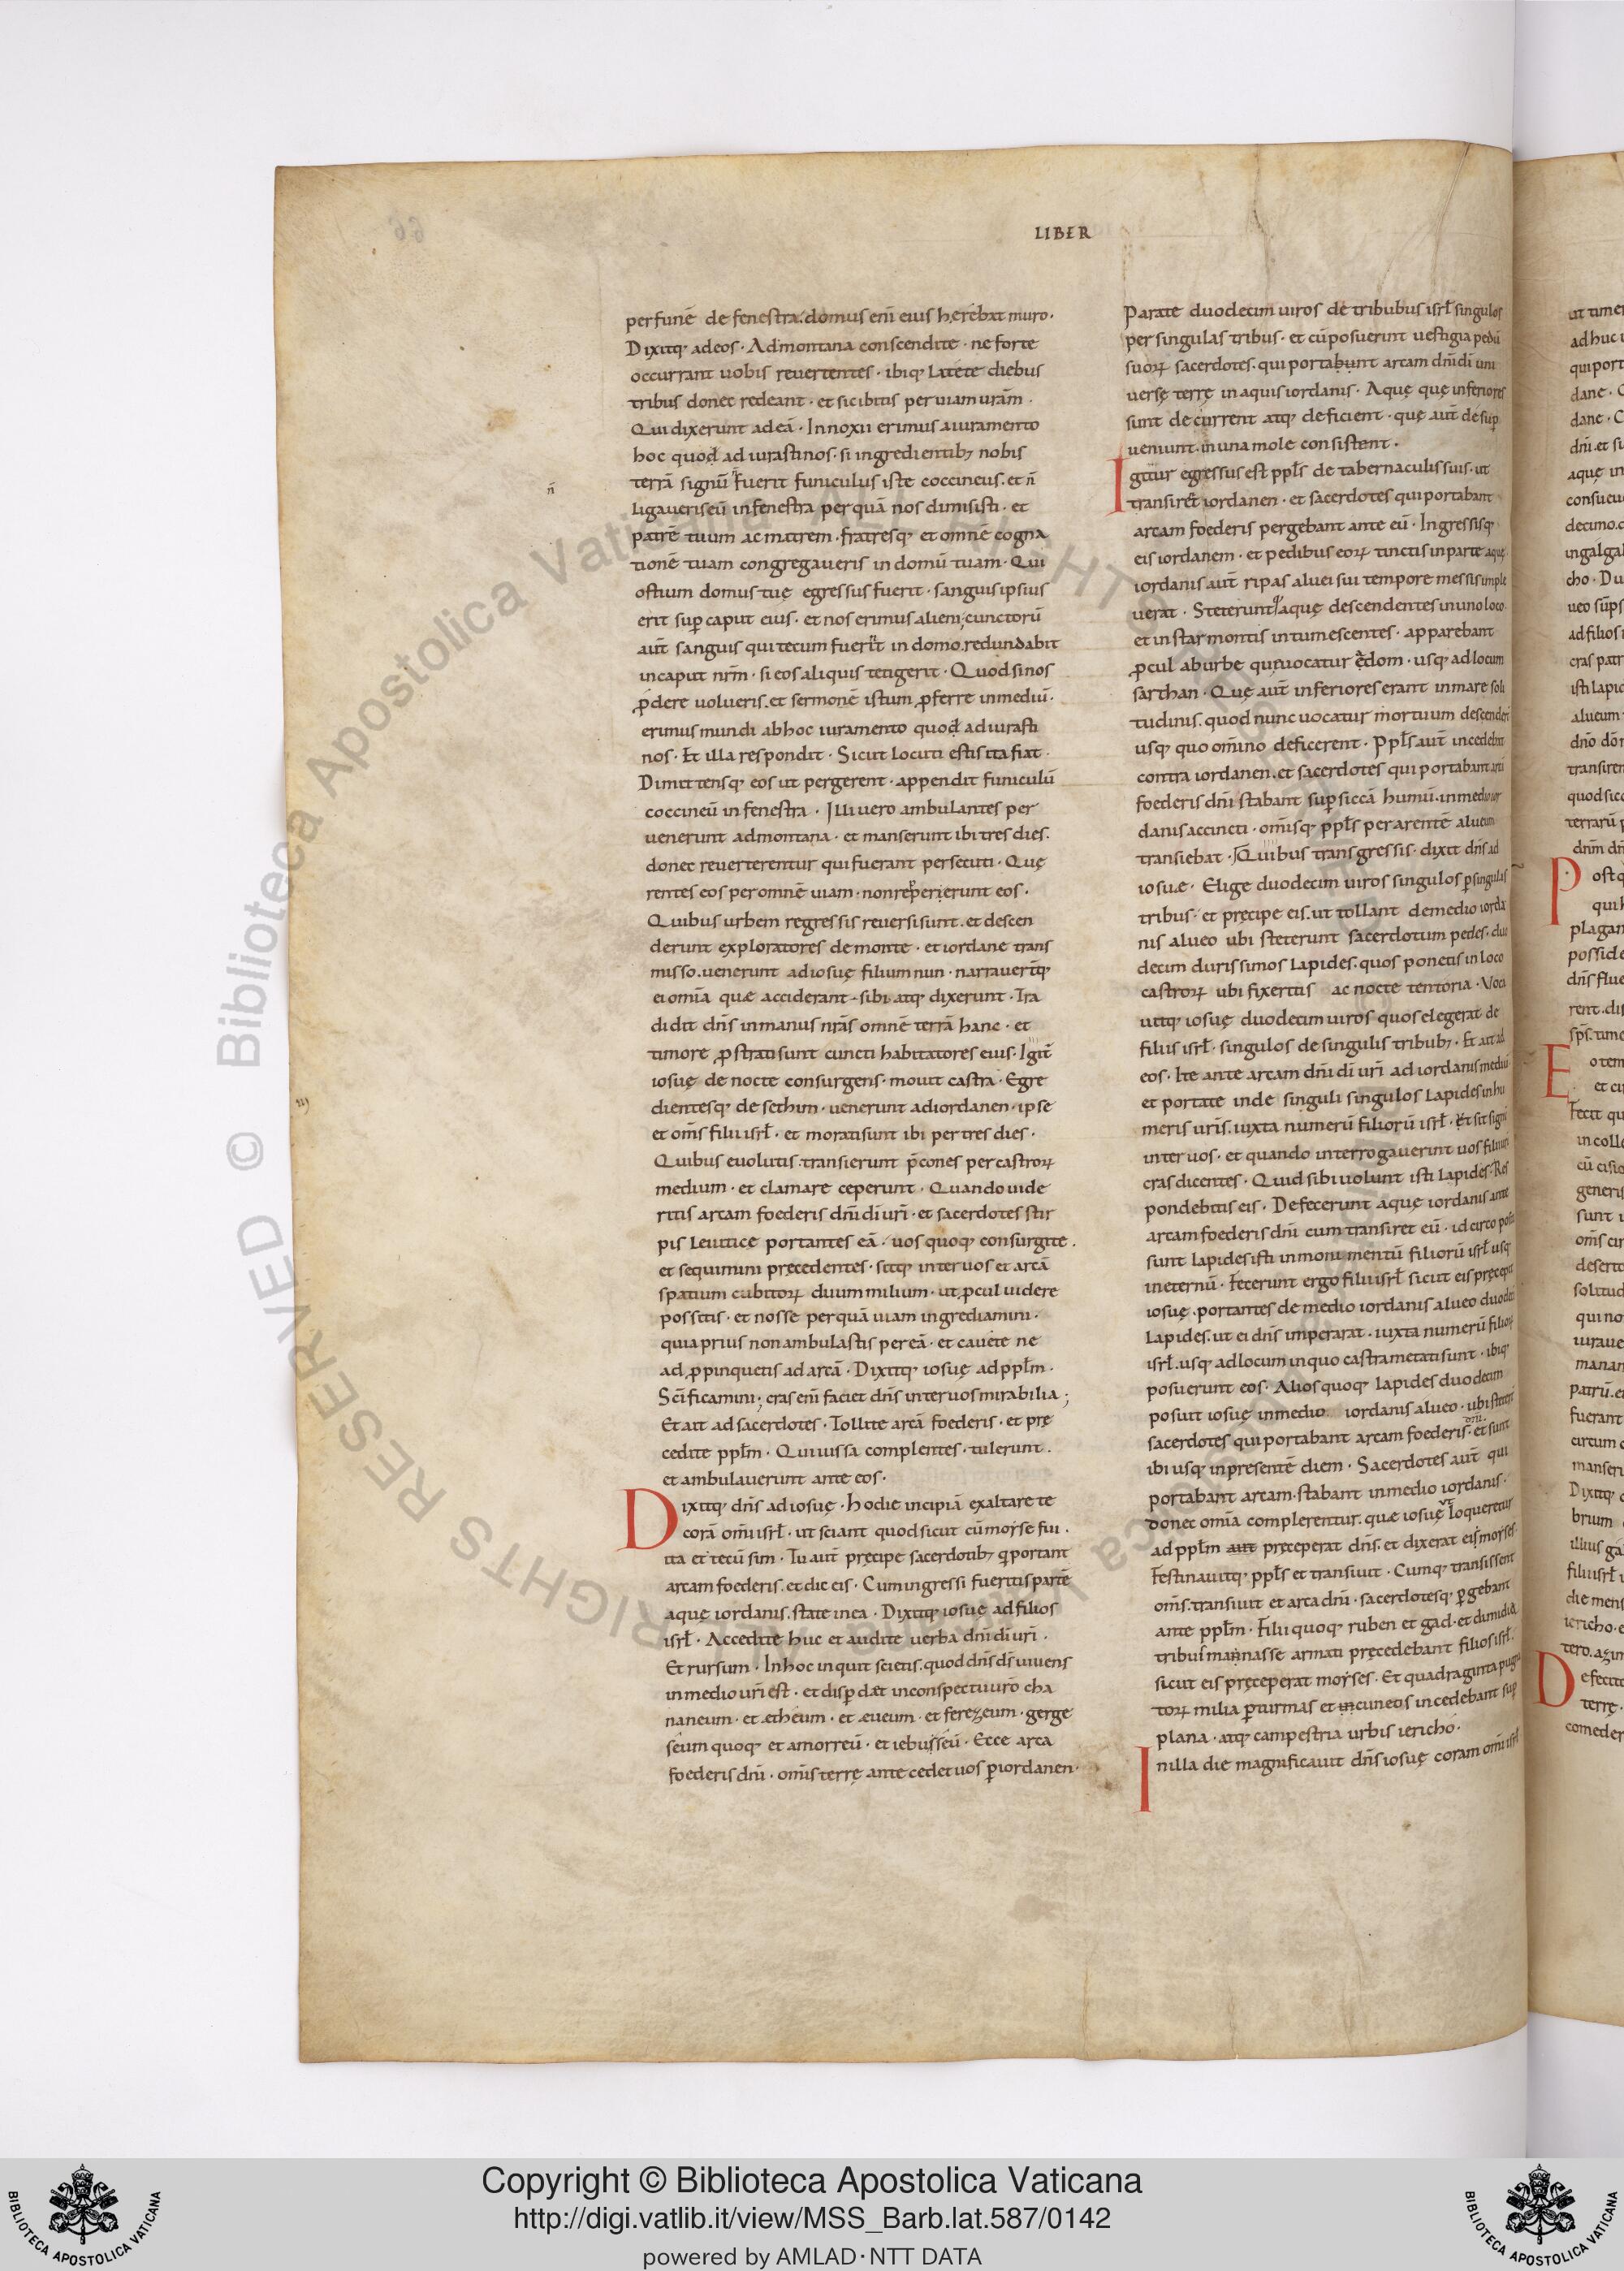 LIBER
perfunē de fenestra. domus enī eius herebat muro.
Dixitq; adeos. Admontana conscendite. ne forte
occurrant uobis reuertentes. ibiq; latete diebus
tribus donec redeant. et sic ibitis per uiam urām.
Qui dixerunt ad eā. Innoxii erimus a iuramento
hoc quod adiurasti nos. si ingredientib; nobis
terrā signū fuerit funiculus iste coccineus. et ñ
ñ
ligaueris eū in fenestra per quā nos dimisisti. et
patrē tuum ac matrem. fratresq; et omnē cogna
tionē tuam congregaueris in domū tuam. Qui
ostium domus tuę egressus fuerit. sanguis ipsius
erit sup caput eius. et nos erimus alieni; cunctorū
aūt sanguis qui tecum fuerīt in domo. redundabit
in caput nrm̄. si eos aliquis tetigerit. Quod si nos
ꝓdere uolueris. et sermonē istum ꝓferre in mediū.
erimus mundi ab hoc iuramento quod adiurasti
nos. Et illa respondit. Sicut locuti estis ita fiat.
Dimittensq; eos ut pergerent. appendit funiculū
coccineū in fenestra. Illi uero ambulantes per
uenerunt admontana. et manserunt ibi tres dies.
donec reuerterentur qui fuerant persecuti. Quę
rentes eos per omnē uiam. non repperierunt eos.
Quibus urbem regressis reuersi sunt. et descen
derunt exploratores de monte. et iordane trans
misso. uenerunt ad iosuę filium nun. narrauertq;
ei omīa quæ acciderant sibi. atq; dixerunt. Tra
didit dn̄s in manus nrās omnē terrā hanc. et
timore ꝓstrati sunt cuncti habitatores eius. Igit̄
iosuę de nocte consurgens. mouit castra. Egre
dientesq; de sethim. uenerunt ad iordanen. ipse
et om̄s filii isrł. et morati sunt ibi per tres dies.
Quibus euolutis. transierunt p̄cones per castroꝝ
medium. et clamare ceperunt. Quando uide
ritis arcam foederis dn̄i dī urī. et sacerdotes stir
pis leuiticę portantes eā. uos quoq; consurgite.
et sequimini pręcedentes. sitq; inter uos et arcā
spatium cubitoꝝ duum milium. ut ꝓcul uidere
possitis. et nosse per quā uiam ingrediamini.
quia prius non ambulastis per eā. et cauete ne
adꝓpinquetis ad arcā. Dixitq; iosuę ad ppłm.
Scīficamini; cras enī faciet dn̄s inter uos mirabilia;
Et ait ad sacerdotes. Tollite arcā foederis. et prę
cedite ppłm. Qui iussa complentes. tulerunt.
et ambulauerunt ante eos.
Dixitq; dn̄s ad iosuę. Hodie incipiā exaltare te
corā omī isrł. ut sciant quod sicut cū moyse fui.
ita et tecū sim. Tu aūt pręcipe sacerdotib; q̇ portant
arcam foederis. et dic eis. Cum ingressi fueritis partē
aquę iordanis. state in ea. Dixitq; iosuę ad filios
isrł. Accedite huc et audite uerba dn̄i dī urī.
Et rursum. In hoc inquit scietis. quod dn̄s ds̄ uiuens
in medio urī est. et disp̱dæt in conspectu uīro cha
naneum. et ætheum. et æueum. et ferezeum. gerge
seum quoq; et amorreū. et iebusseū. Ecce arca
foederis dn̄i. om̄is terrę antecedet uos ꝑ iordanen.
Parate duodecim uiros de tribubus isrł singulos
per singulas tribus. et cū posuerint uestigia pedū
suoꝝ sacerdotes. qui portabunt arcam dn̄i dī uni
uersę terrę in aquis iordanis. Aquę quę inferiores
sunt decurrent atq; deficient. quę aūt desup
ueniunt. in una mole consistent.
Igitur egressus est ppłs de tabernaculis suis. ut
transiret iordanen. et sacerdotes qui portabant
arcam foederis pergebant ante eū. Ingressisq;
eis iordanem. et pedibus eoꝝ tinctis in parte aquę.
iordanis aūt ripas aluei sui tempore messis imple
uerat. Steterunt aquę descendentes in uno loco
et instar montis intumescentes. apparebant
ꝓcul ab urbe quę uocatur edom. usq; ad locum
sarthan. Quę aūt inferiores erant in mare soli
tudinis. quod nunc uocatur mortuum descenderī
usq; quo om̄ino deficerent. Ppłs aūt incedebat
contra iordanen. et sacerdotes qui portabant arcā
foederis dn̄i stabant sup siccā humū. in medio ior
danis accincti. om̄isq; ppłs per arentē alueum
transiebat. Quibus transgressis. dixit dn̄s ad
iosuæ. Elige duodecim uiros singulos ꝑ singulas
tribus. et pręcipe eis. ut tollant de medio iorda
nis alueo ubi steterunt sacerdotum pedes. duo
decim durissimos lapides. quos ponetis in loco
castroꝝ ubi fixeritis ac nocte tentoria. Voca
uitq; iosuę duodecim uiros quos elegerat de
filiis isrł. singulos de singulis tribub;. Et ait ad
eos. Ite ante arcam dn̄i dī urī ad iordanis mediū
et portate inde singuli singulos lapides in hu
meris urīs. iuxta numerū filiorū isrł. et sit signū
inter uos. et quando interrogauerint uos filii urī
cras dicentes. Quid sibi uolunt isti lapides. Res
pondebitis eis. Defecerunt aquę iordanis ante
arcam foederis dn̄i cum transiret eū. idcirco posi
sunt lapides isti in monumentū filiorū isrł usq;
in eternū. Fecerunt ergo filii isrł sicut eis pręcepit
iosuę. portantes de medio iordanis alueo duodeci
lapides. ut ei dn̄s imperarat. iuxta numerū filioꝝ
isrł. usq; ad locum in quo castra metati sunt. ibiq;
posuerunt eos. Alios quoq; lapides duodecim
posuit iosuę in medio iordanis alueo. ubi steterī
sacerdotes qui portabant arcam foederis dn̄i. et sunt
ibi usq; in presentē diem. Sacerdotes aūt qui
portabant arcam. stabant in medio iordanis.
donec omīa complerentur. quæ iosuę ut loqueretur
ad ppłm aut pręceperat dn̄s. et dixerat ei moyses.
Festinauitq; ppłs et transiuit. Cumq; transissent
om̄s. transiuit et arca dn̄i. sacerdotesq; ꝑgebant
ante ppłm. Filii quoq; ruben et gad. et dimidia
tribus mannasse armati pręcedebant filios isrł.
sicut eis pręceperat moyses. Et quadraginta pugna
toꝝ milia ꝑ turmas et in cuneos incedebant sup
plana. atq; campestria urbis iericho.
In illa die magnificauit dn̄s iosuę coram omī isrł
Copyright © Biblioteca Apostolica Vaticana
http://digi.vatlib.it/view/MSS_Barb.lat.587/0142
powered by AMLAD·NTT DATA
BIBLIOTECA APOSTOLICA VATICANA
BIBLIOTECA APOSTOLICA VATICANA